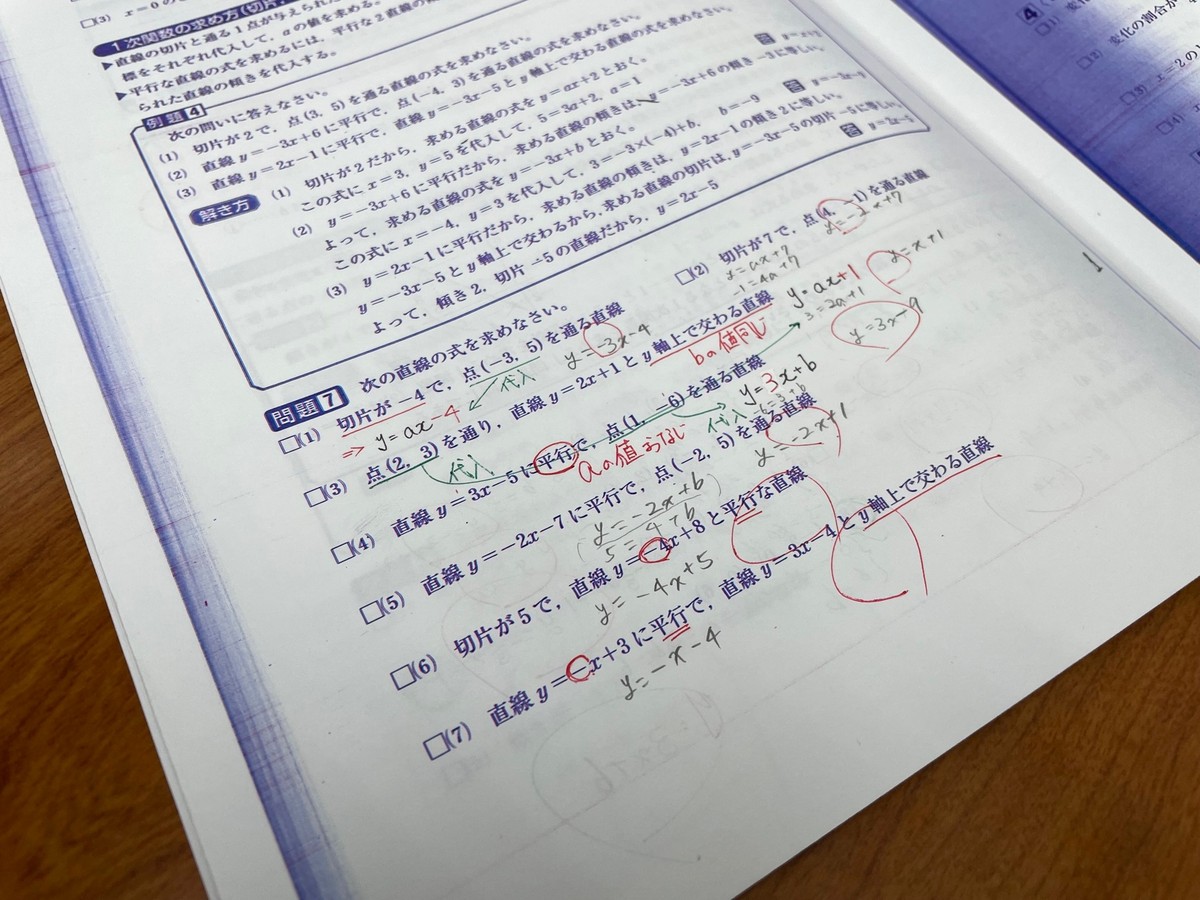 □(3) x=0の
1次関数の求め方(切片,
▶直線の切片と通る1点が与えられた
標をそれぞれ代入して, aの値を求める。
▶平行な直線の式を求めるには, 平行な2直線の
られた直線の傾きを代入する。
例題4
次の問いに答えなさい。
(1) 切片が2で, 点(3, 5)を通る直線の式を求めなさい。
(2) 直線y=-3x+6に平行で, 点(-4, 3)を通る直線の式を求めなさい。
(3) 直線y=2x-1に平行で, 直線y=-3x-5とy軸上で交わる直線の式を求めなさい。
解き方
(1) 切片が2だから, 求める直線の式をy=ax+2とおく。
この式にx=3, y=5を代入して, 5=3a+2, a=1
(2) y=-3x+6に平行だから, 求める直線の傾きは, y=-3x+6の傾き-3に等しい。
よって, 求める直線の式をy=-3x+bとおく。
この式にx=-4, y=3を代入して, 3=-3×(-4)+b, b=-9
答 y=-3x-9
(3) y=2x-1に平行だから, 求める直線の傾きは, y=2x-1の傾き2に等しい。
y=-3x-5とy軸上で交わるから, 求める直線の切片は, y=-3x-5の切片-5に等しい。
よって, 傾き2, 切片-5の直線だから, y=2x-5
答 y=2x-5
問題7 次の直線の式を求めなさい。
□(1) 切片が-4で, 点(-3, 5)を通る直線
⇒ y=ax-4
代入
y=-3x-4
□(2) 切片が7で, 点(4, -1)を通る直線
y=ax+7
-1=4a+7
y=-2x+7
□(3) 点(2, 3)を通り, 直線y=2x+1とy軸上で交わる直線
代入
bの値同じ
y=ax+1
3=2a+1
y=x+1
□(4) 直線y=3x-5に平行で, 点(1, -6)を通る直線
aの値おなじ
代入
y=3x+b
-6=3+b
y=3x-9
□(5) 直線y=-2x-7に平行で, 点(-2, 5)を通る直線
y=-2x+b
5=4+b
y=-2x+1
□(6) 切片が5で, 直線y=-4x+8と平行な直線
y=-4x+5
□(7) 直線y=-x+3に平行で, 直線y=3x-4とy軸上で交わる直線
y=-x-4
4
変化の割合が
□(3) x=2の